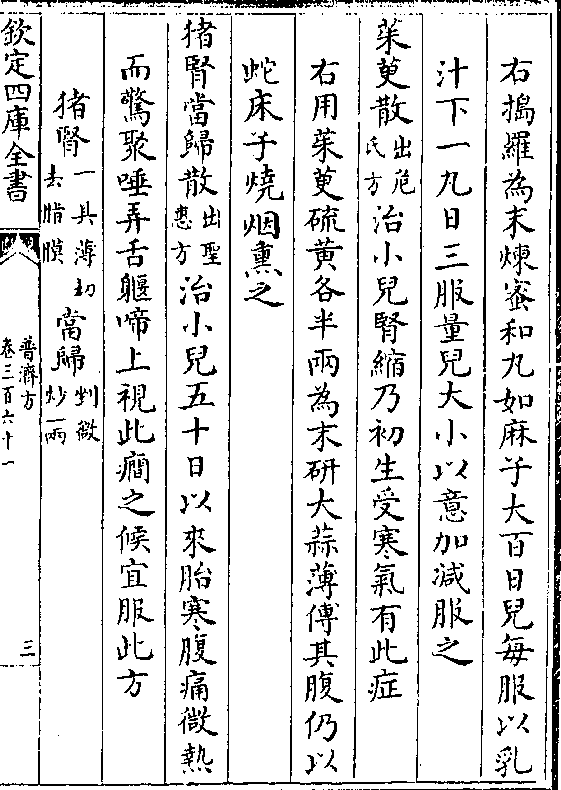 右搗羅為末煉蜜和丸如麻子大百日兒每服以乳
汁下一丸日三服量兒大小以意加減服之
茱萸散出危氏方治小兒腎縮乃初生受寒氣有此症
右用茱萸硫黄各半兩為末研大蒜薄傅其腹仍以
蛇床子燒烟熏之
猪腎當歸散出聖惠方治小兒五十日以來胎寒腹痛微熱
而驚聚唾弄舌軀啼上視此癎之候宜服此方
猪腎一具薄切去脂膜當歸剉微炒一兩
欽定四庫全書
普濟方
卷三百六十一
三